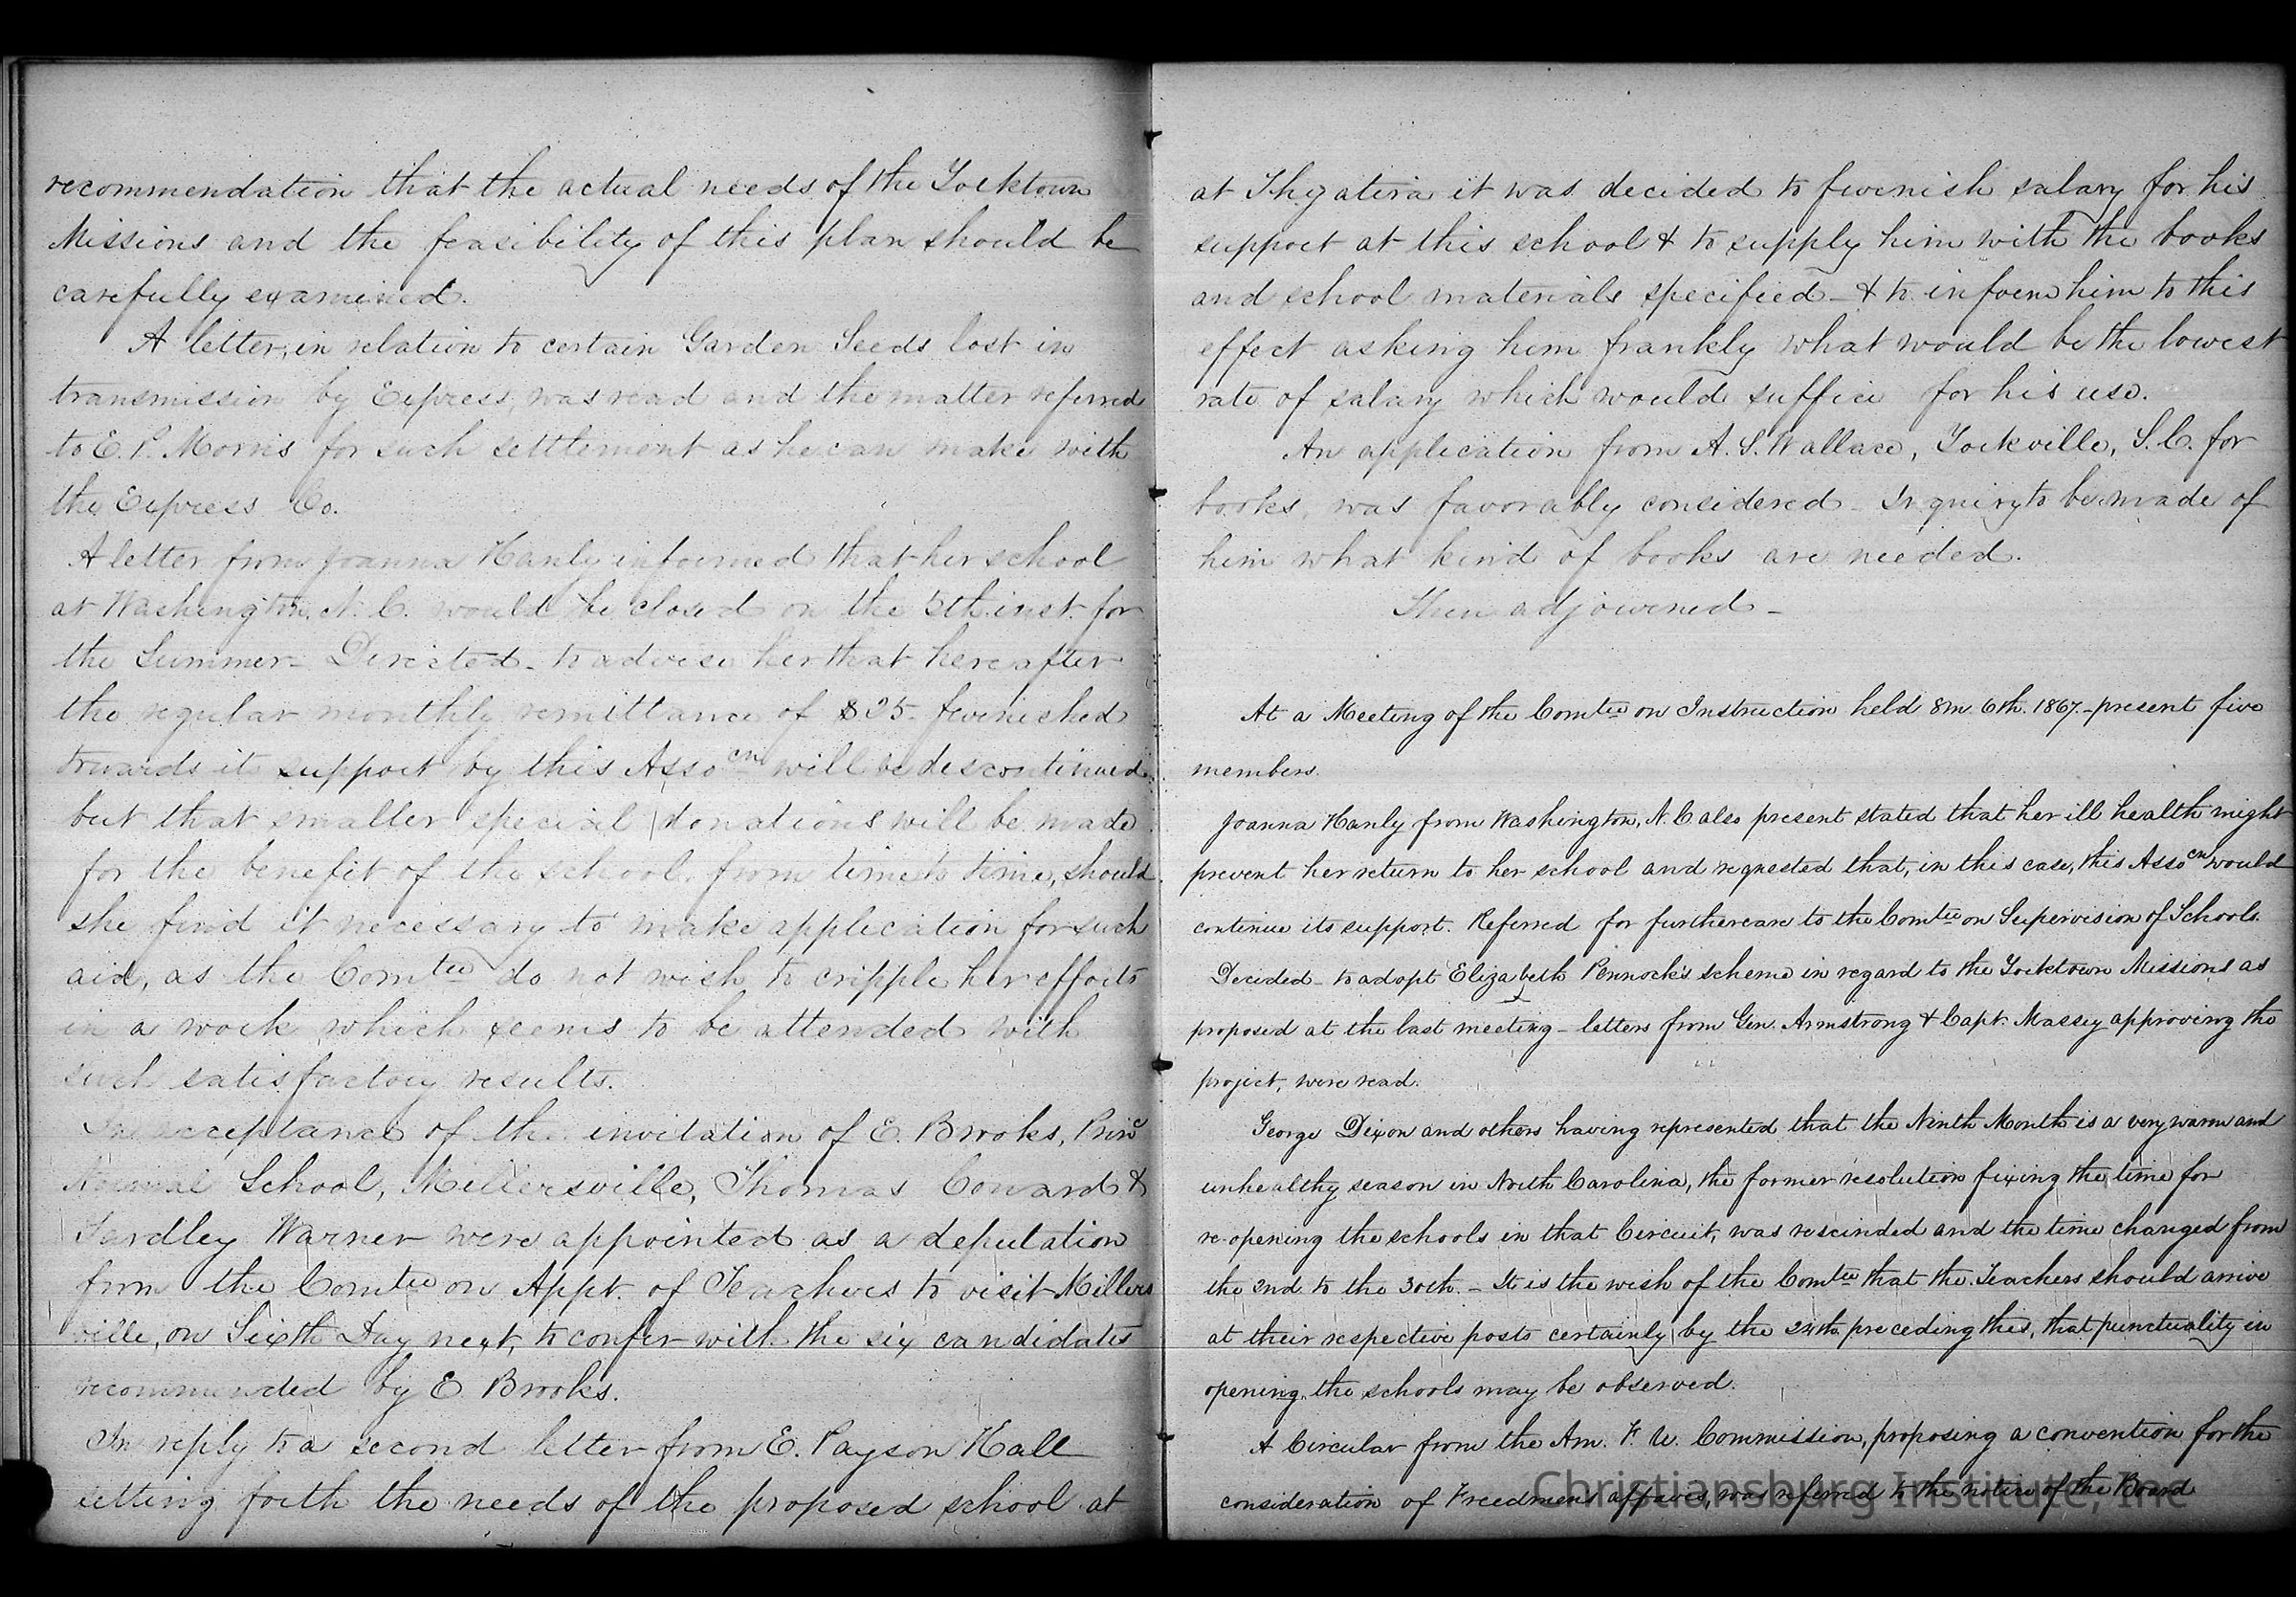 recommendation that the actual needs of the Yorktown
Missions and the feasibility of this plan should be
carefully examined.
A letter, in relation to certain Garden Seeds lost in
transmission by Express, was read and the matter referred
to E. P. Morris for such settlement as he can make with
the Express Co.
A letter from Joanna Hanly informed that her school
at Washington, N. C. would be closed on the 5th inst. for
the Summer - Directed - to advise her that hereafter
the regular monthly remittance of $25. furnished
towards it support by this Assocn will be discontinued,
but that smaller special donations will be made
for the benefit of the school, from time to time, should
she find it necessary to make application for such
aid, as the Comtee do not wish to cripple her efforts
in a work which seems to be attended with
such satisfactory results.
In acceptance of the invitation of E. Brooks, Princ
Normal School, Millersville, Thomas Conard &
Yardley Warner were appointed as a deputation
from the Comtee on Appt. of Teachers to visit Millers
ville, on Sixth Day next, to confer with the six candidates
recommended by E. Brooks.
In reply to a second letter from E. Payson Hall
setting forth the needs of the proposed school at
at Thyatira it was decided to furnish salary for his
support at this school & to supply him with the books
and school materials specified - & to inform him to this
effect asking him frankly what would be the lowest
rate of salary which would suffice for his use.
An application from A. S. Wallace, Yorkville, S. C. for
books, was favorably considered - Inquiry to be made of
him what kind of books are needed.
Then adjourned -
At a Meeting of the Comtee on Instruction held 8m. 6th. 1867. - present five
members.
Joanna Hanly from Washington, N. C. also present stated that her ill health might
prevent her return to her school and requested that, in this case, this Assocn would
continue its support. Referred for further care to the Comtee on Supervision of Schools.
Decided - to adopt Elizabeth Pennock's scheme in regard to the Yorktown Missions as
proposed at the last meeting - letters from Gen. Armstrong & Capt. Massey approving the
project, were read.
George Dixon and others having represented that the Ninth Month is a very warm and
unhealthy season in North Carolina, the former resolution fixing the time for
re-opening the schools in that Circuit, was rescinded and the time changed from
the 2nd to the 30th. - It is the wish of the Comtee that the Teachers should arrive
at their respective posts certainly by the 28th preceding this, that punctuality in
opening the schools may be observed.
A Circular from the Am. F. U. Commission, proposing a convention for the
consideration of Freedmens affairs, was referred to the notice of the Board
Christiansburg Institute, Inc